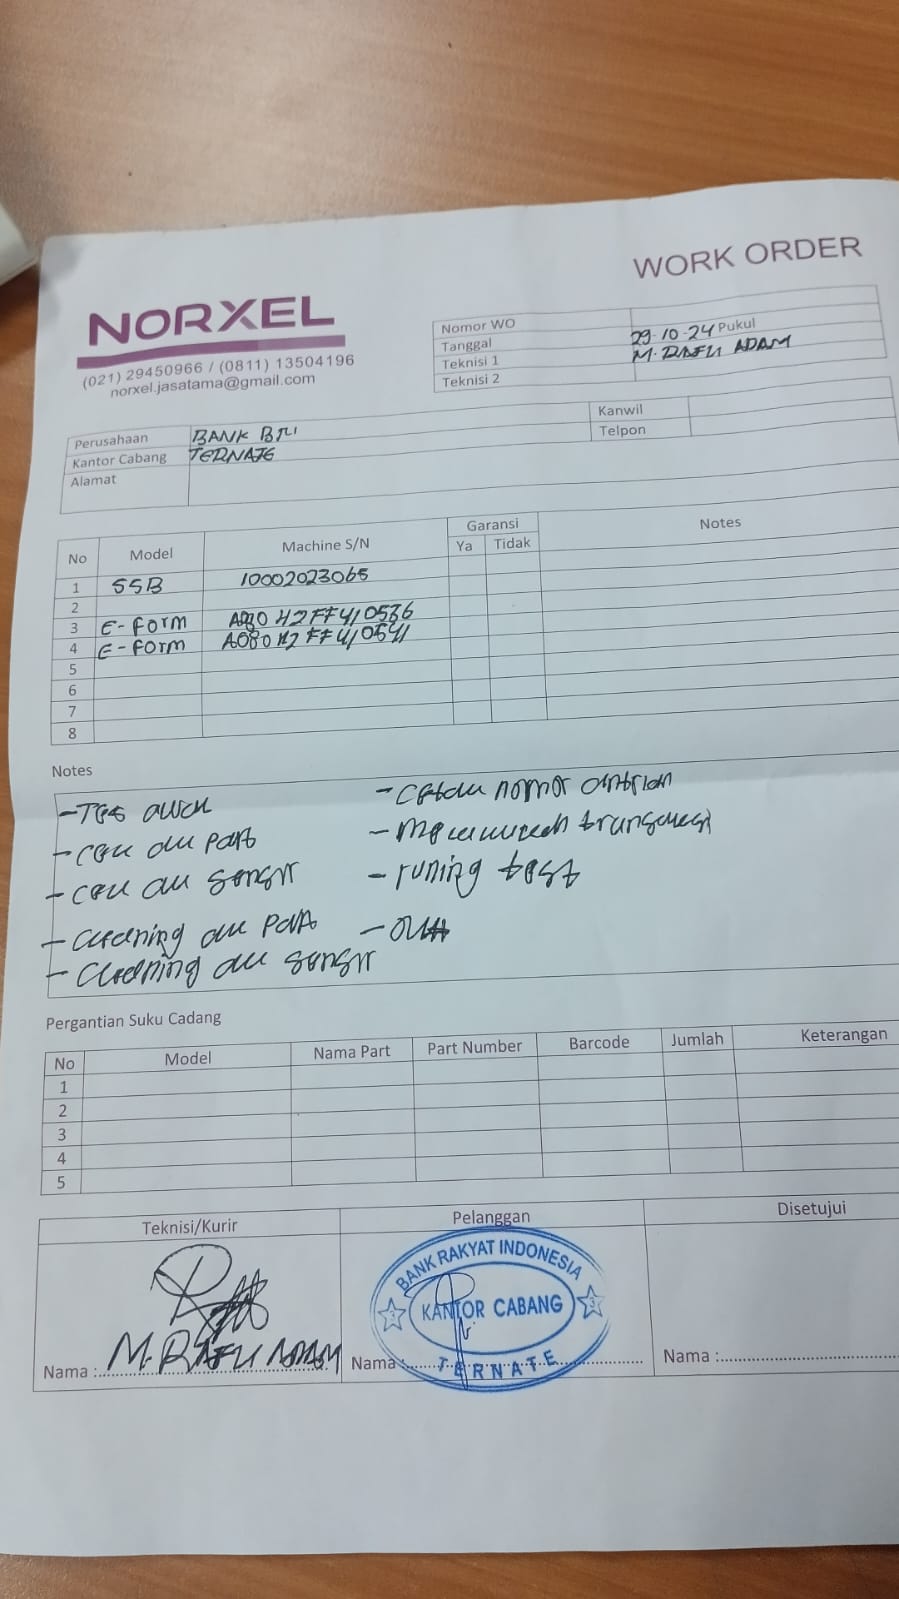 WORK ORDER
NORXEL
(021) 29450966 / (0811) 13504196
norxel.jasatama@gmail.com
Nomor WO
Tanggal 29-10-24 Pukul
Teknisi 1 M. RAFLI ADAM
Teknisi 2
Perusahaan BANK BRI
Kantor Cabang TERNATE
Alamat
Kanwil
Telpon
No Model Machine S/N Garansi Notes
Ya Tidak
1 SSB 10002023065
2
3 E-Form A080H2FF410536
4 E-Form A080H2FF410541
5
6
7
8
Notes
- Tes
- cek all Part
- cek all sensor
- Cleaning all Part
- Cleaning all sensor
- Cetak nomor antrian
- transaksi
- runing test
Pergantian Suku Cadang
No Model Nama Part Part Number Barcode Jumlah Keterangan
1
2
3
4
5
Teknisi/Kurir Pelanggan Disetujui
BANK RAKYAT INDONESIA
3 KANTOR CABANG 3
TERNATE
Nama : M. RAFLI ADAM
Nama :
Nama :